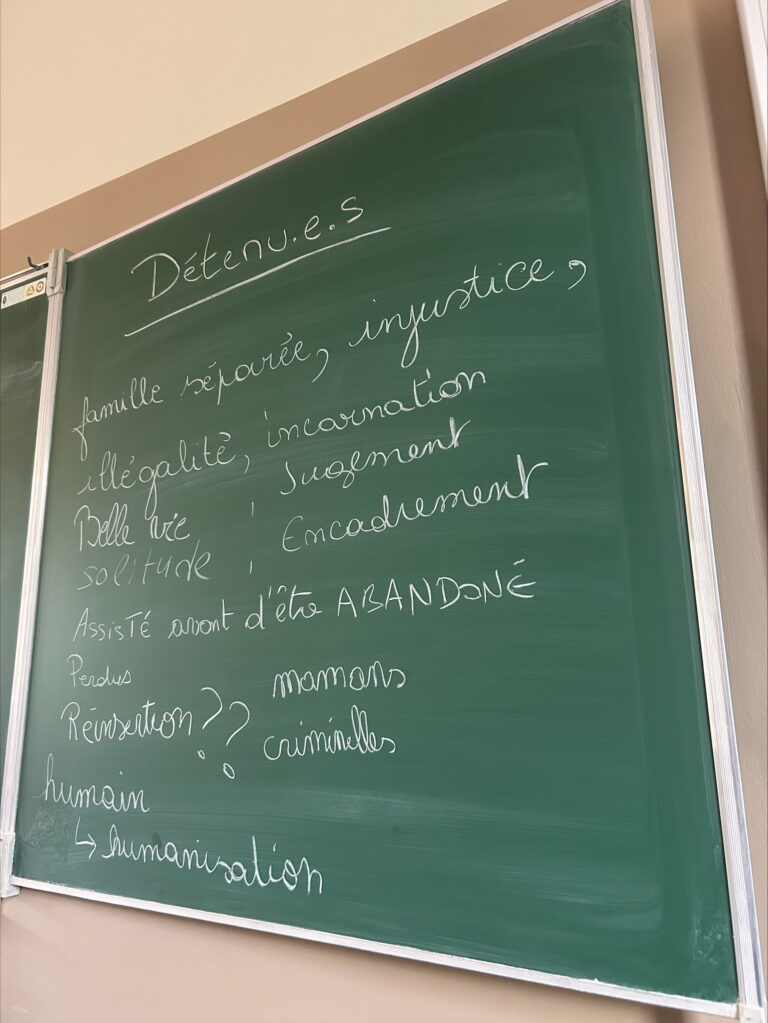 Détenu.e.s
famille séparée, injustice,
illégalité, incarnation
Belle vie , Jugement
solitude , Encadrement
ASSISTÉ avant d'être ABANDONÉ
Perdus
mamans
Réinsertion??
criminelles
humain
↳ humanisation